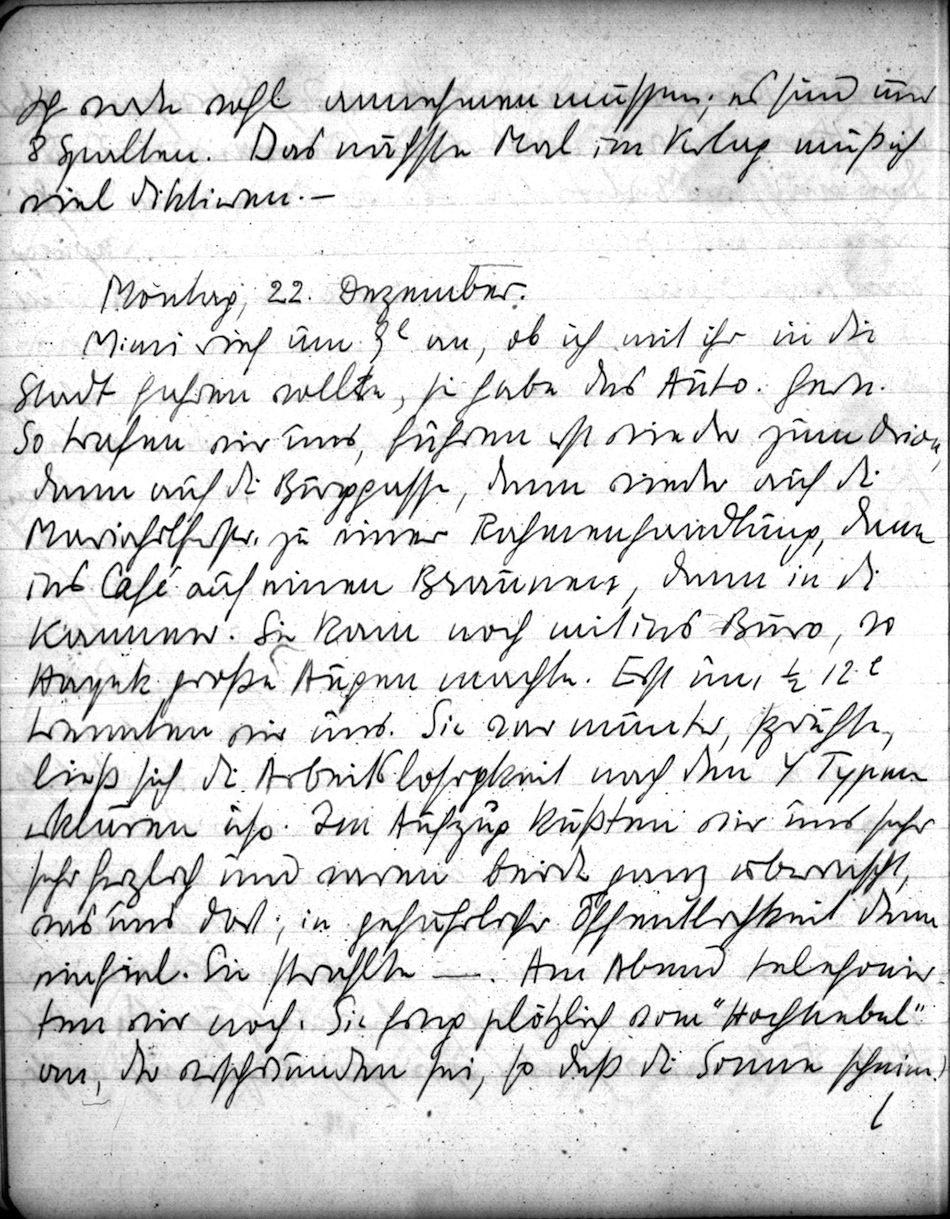 Ich werde wohl annehmen müssen; es sind nur
8 Spalten. Das nächste Mal im Verlag muß ich
viel diktieren.–
Montag, 22. Dezember.
Mimi rief um h an, ob ich mit ihr in die
Stadt fahren wollte, sie habe das Auto. Gern.
So trafen wir uns, fuhren erst wieder zum Orion,
dann auf die Burggasse, dann wieder auf die
Mariahilferstr. zu einer Rahmenhandlung, dann
ins Café auf einen Braunen, dann in die
Kammer. Sie kam noch mit ins Büro, wo
Hayek große Augen machte. Erst um ½ 12 h
trennten wir uns. Sie war munter, krähte,
ließ sich die Arbeitslosigkeit nach den 4 Typen
erklären usf. Im Aufzug küßten wir uns sehr
sehr herzlich und waren beide ganz überrascht,
was uns dort, in gefährlicher Öffentlichkeit denn
einfiel. Sie strahlte —. Am Abend telefonier-
ten wir noch. Sie fing plötzlich vom "Hochnebel"
an, der verschwunden sei, so daß die Sonne scheine.